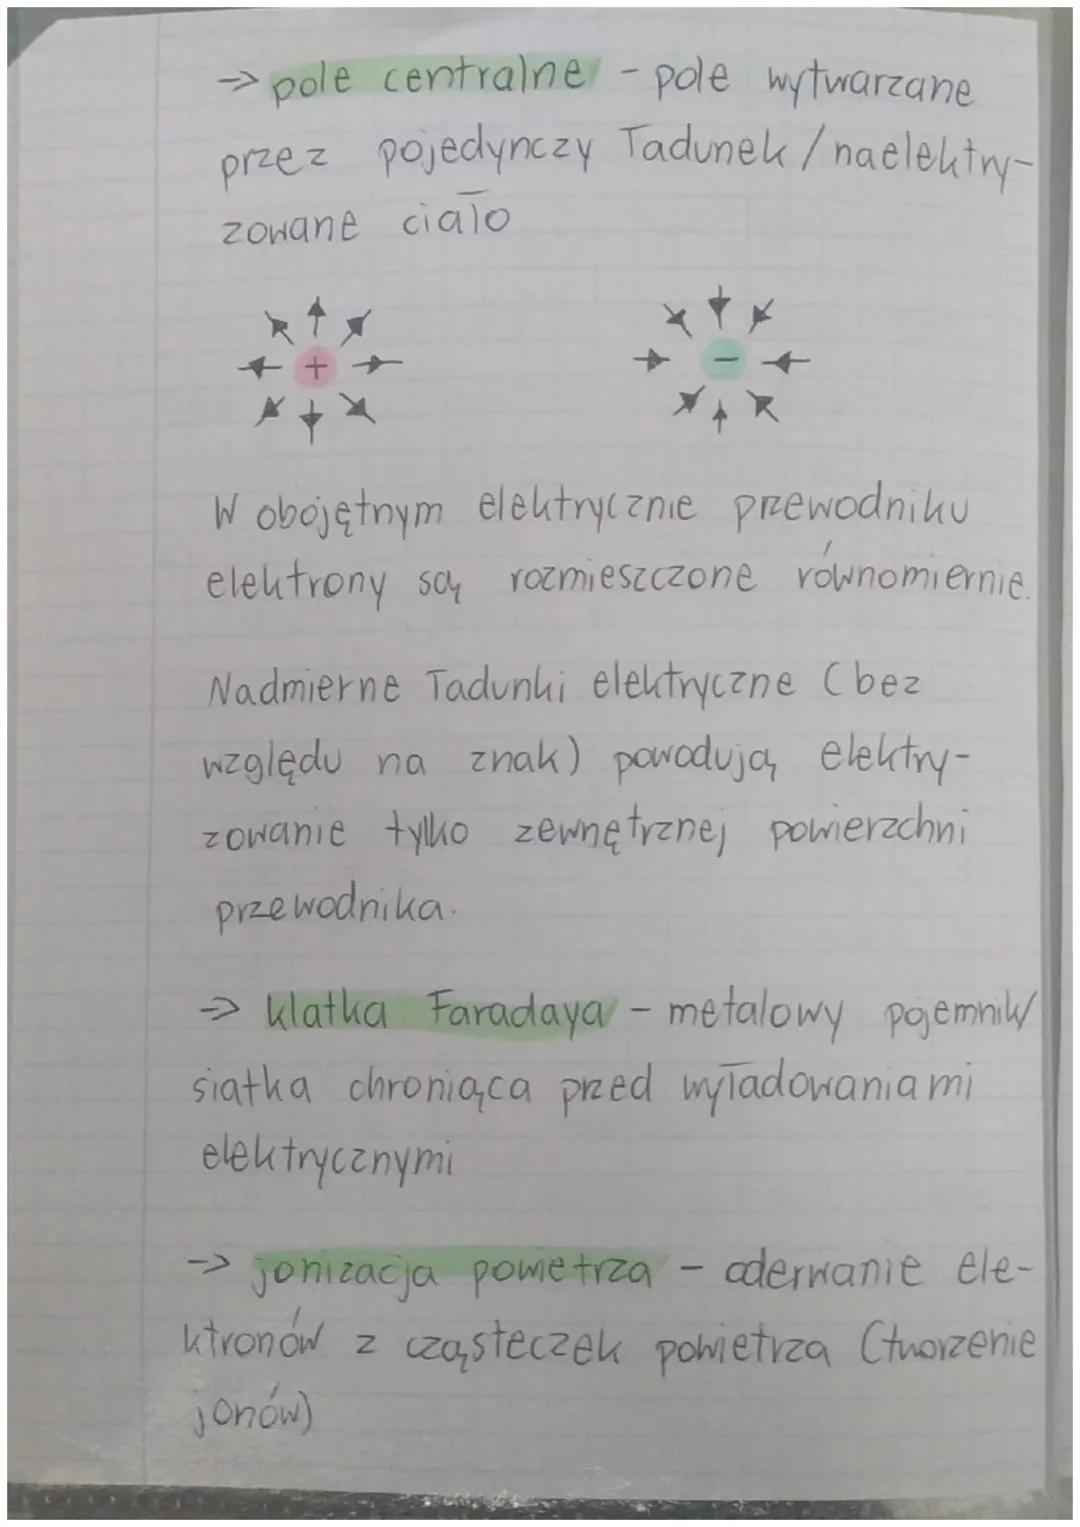 -> pole centralne - pole wytwarzane
przez pojedynczy ładunek / naelektry-
zowane ciało
+ -
W obojętnym elektrycznie przewodniku
elektrony są rozmieszczone równomiernie.
Nadmierne ładunki elektryczne (bez
względu na znak) powodują elektry-
zowanie tylko zewnętrznej powierzchni
przewodnika.
-> klatka Faradaya - metalowy pojemnik/
siatka chroniąca przed wyładowaniami
elektrycznymi
-> jonizacja powietrza - oderwanie ele-
ktronów z cząsteczek powietrza (tworzenie
jonów)